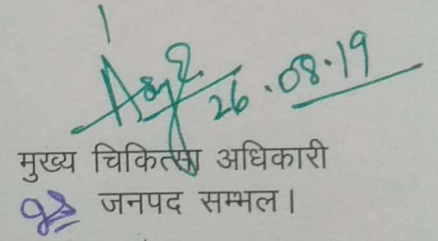 26.08.19
मुख्य चिकित्सा अधिकारी
जनपद सम्भल।